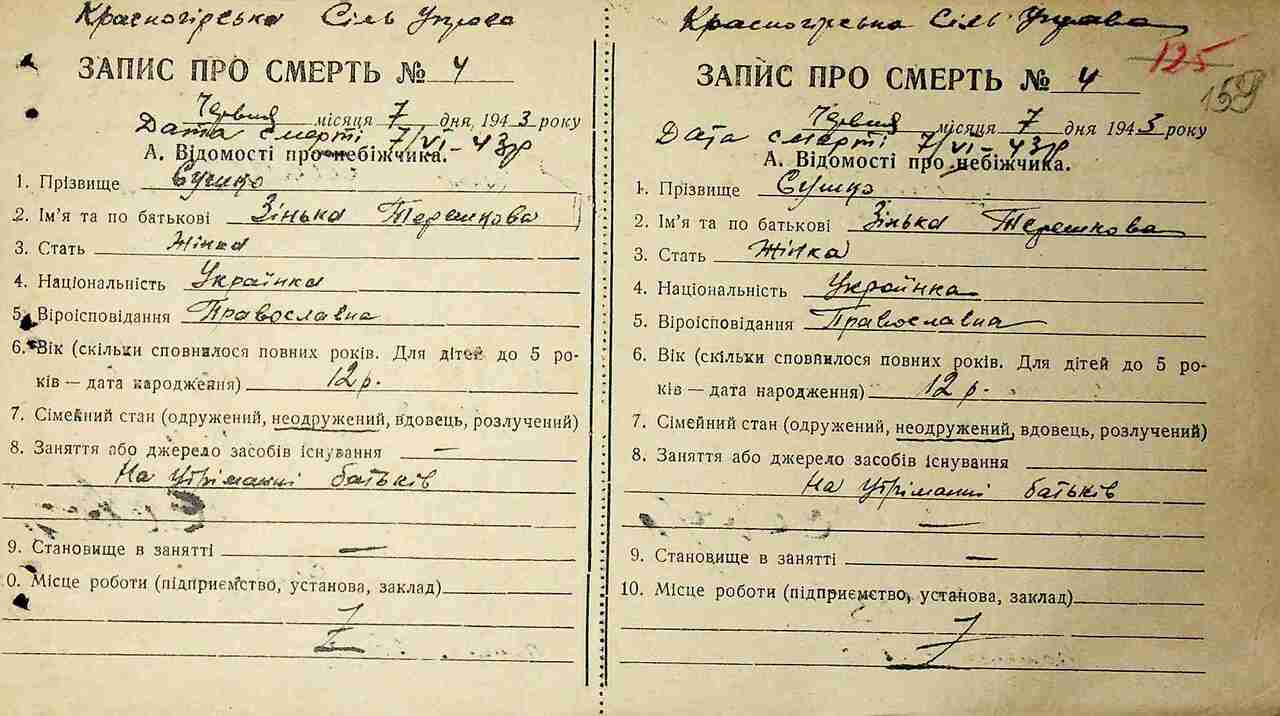 Красногірська Сіль Управа
ЗАПИС ПРО СМЕРТЬ № 4
Червня місяця 7 дня, 1943 року
Дата смерті 7/VI – 43 р
А. Відомості про небіжчика.
1. Прізвище Сушко
2. Ім'я та по батькові Зінька Терешкова
3. Стать Жінка
4. Національність Українка
5. Віроісповідання Православна
6. Вік (скільки сповнилося повних років. Для дітей до 5 ро-
ків — дата народження) 12 р.
7. Сімейний стан (одружений, неодружений, вдовець, розлучений)
8. Заняття або джерело засобів існування —
На утріманні батьків
9. Становище в занятті —
0. Місце роботи (підприємство, установа, заклад)
Красногірська Сіль Управа
125
159
ЗАПИС ПРО СМЕРТЬ № 4
Червня місяця 7 дня 1943 року
Дата смерті 7/VI – 43 р
А. Відомості про небіжчика.
1. Прізвище Сушко
2. Ім'я та по батькові Зінька Терешкова
3. Стать Жінка
4. Національність Українка
5. Віроісповідання Православна
6. Вік (скільки сповнилося повних років. Для дітей до 5 ро-
ків — дата народження) 12 р.
7. Сімейний стан (одружений, неодружений, вдовець, розлучений)
8. Заняття або джерело засобів існування
На утріманні батьків
—
9. Становище в занятті —
10. Місце роботи (підприємство, установа, заклад)